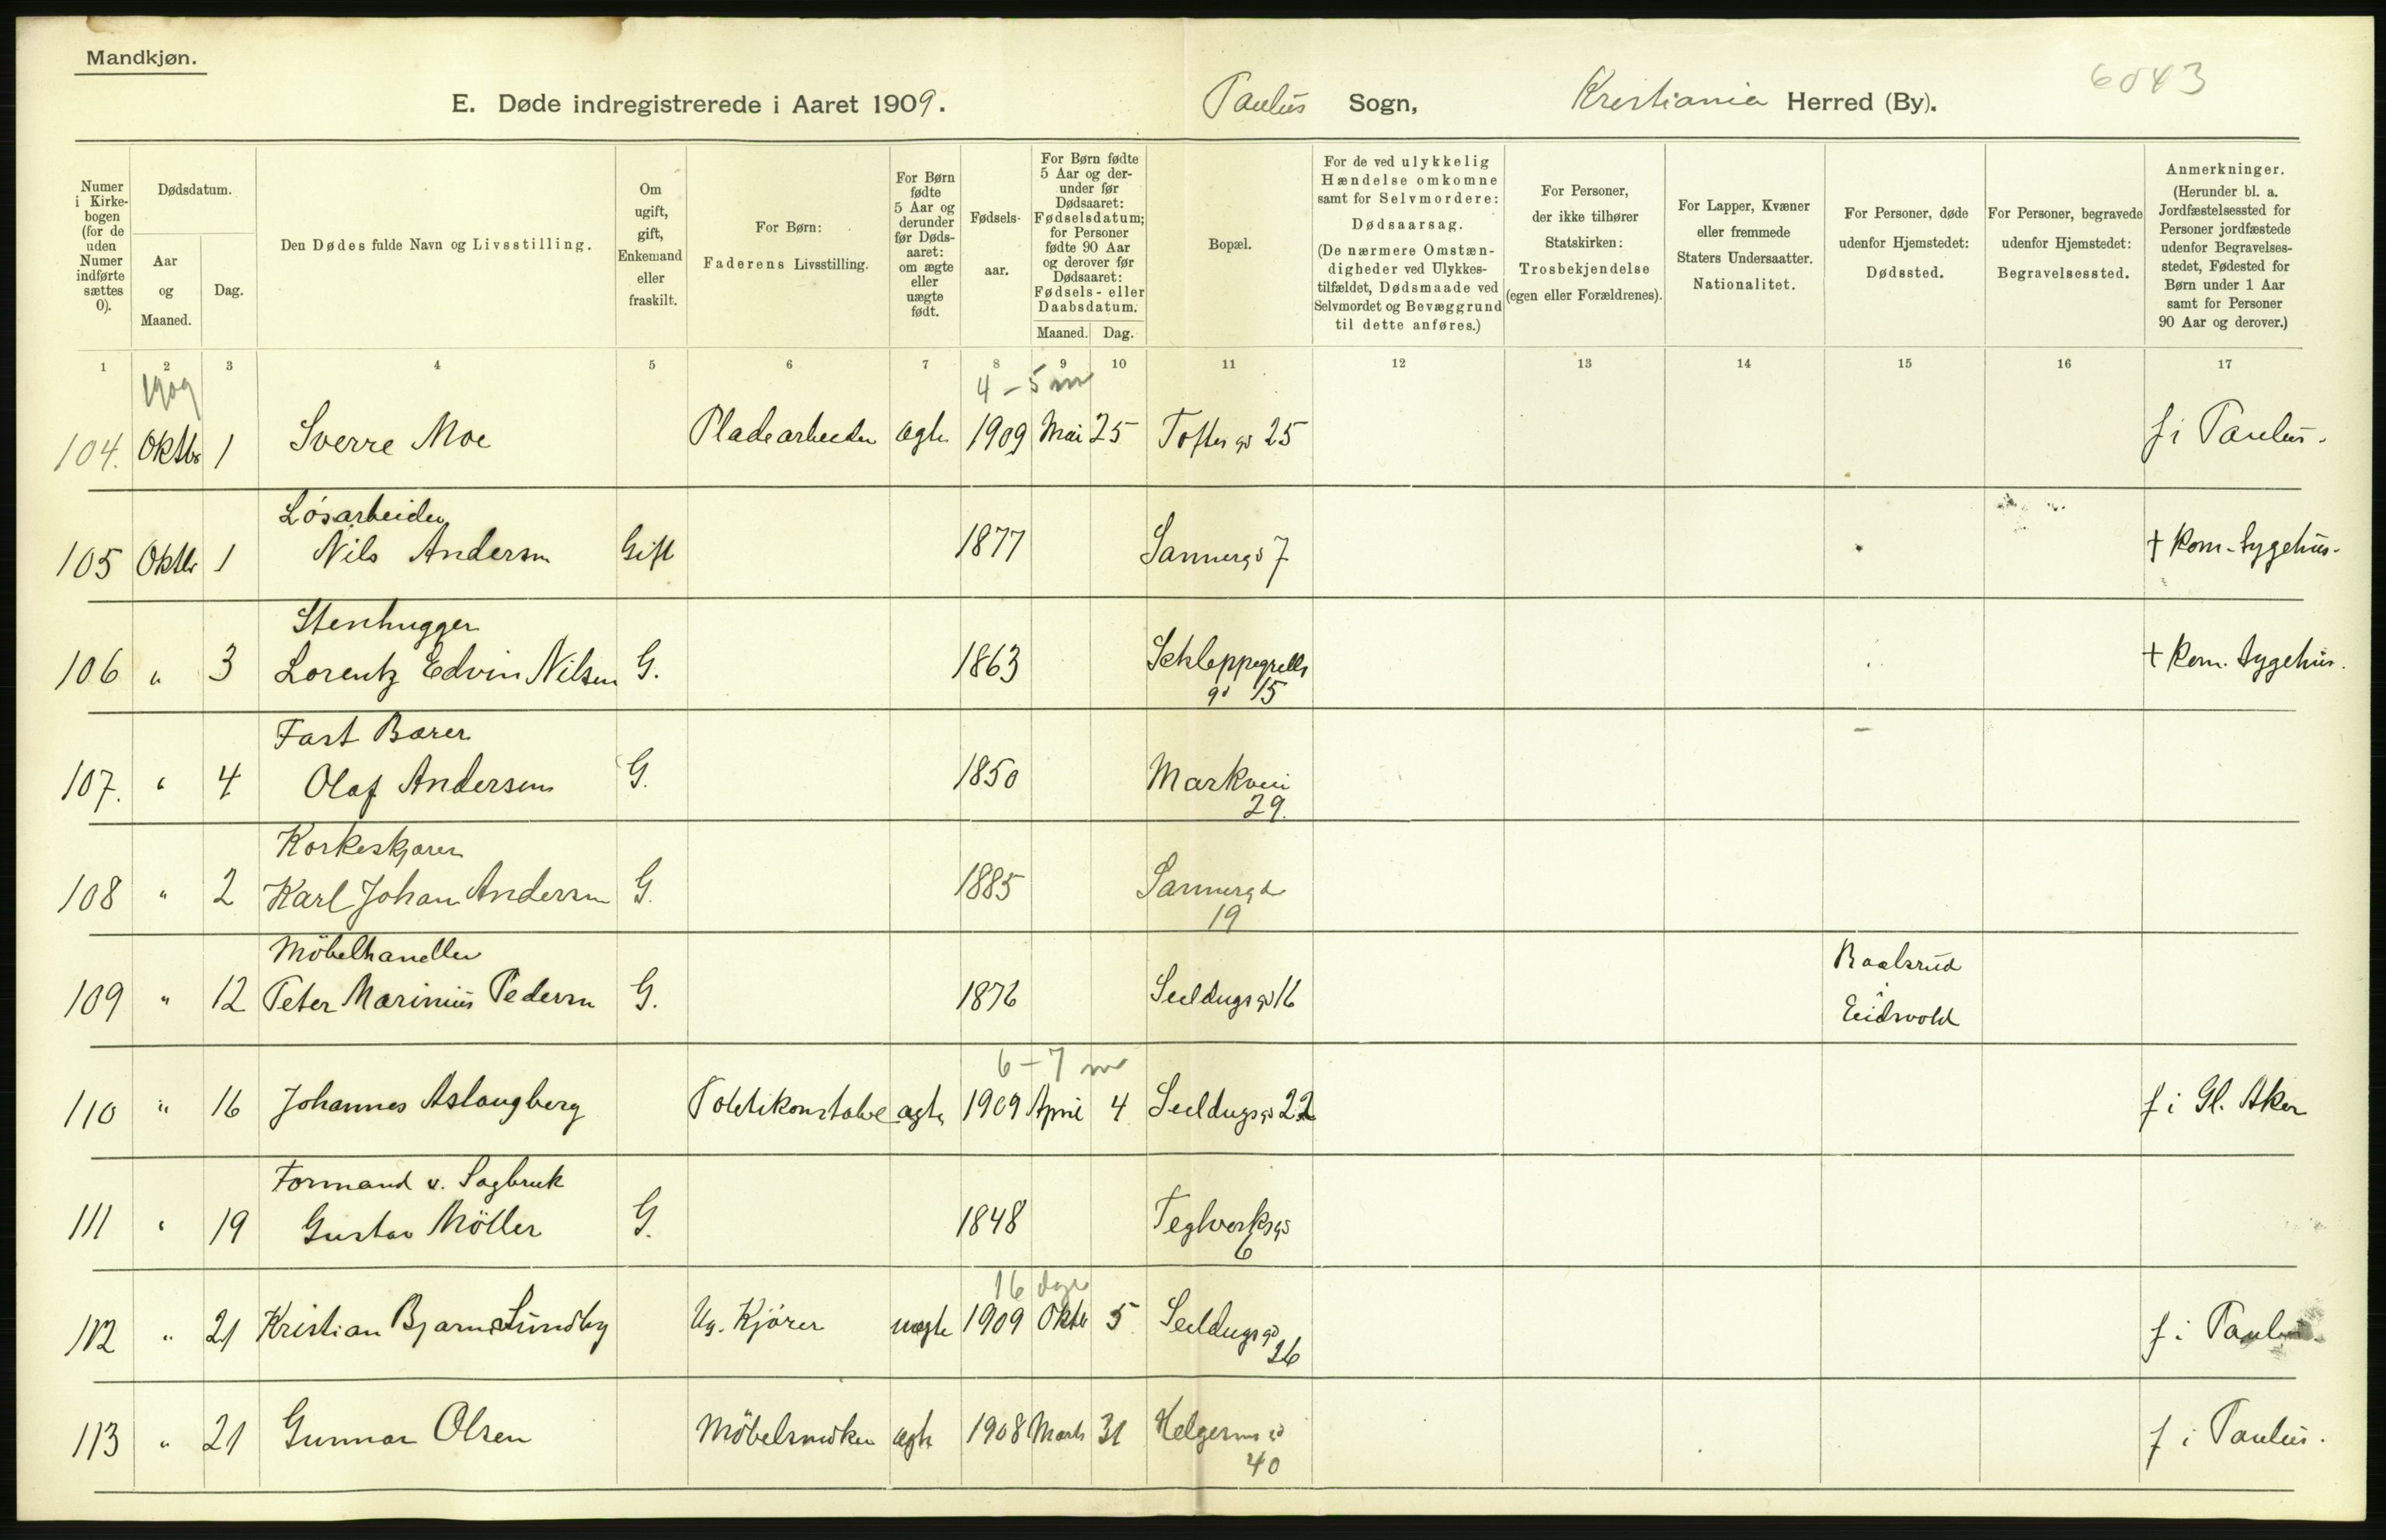 Mandkjøn.
E. Døde indregistrerede i Aaret 1909. Paulus Sogn, Kristiania Herred (By). 6043
Numer i Kirkebogen (for de uden Numer indførte sættes 0).
Dødsdatum.
Aar og Maaned.
Dag.
Den Dødes fulde Navn og Livsstilling.
Om ugift, gift, Enkemand eller fraskilt.
For Børn: Faderens Livsstilling.
For Børn fødte 5 Aar og derunder før Dødsaaret: om ægte eller uægte født.
Fødselsaar.
For Børn fødte 5 Aar og derunder før Dødsaaret: Fødselsdatum; for Personer fødte 90 Aar og derover før Dødsaaret: Fødsels- eller Daabsdatum.
Maaned. Dag.
Bopæl.
For de ved ulykkelig Hændelse omkomne samt for Selvmordere: Dødsaarsag. (De nærmere Omstændigheder ved Ulykkestilfældet, Dødsmaade ved Selvmordet og Bevæggrund til dette anføres.)
For Personer, der ikke tilhører Statskirken: Trosbekjendelse (egen eller Forældrenes).
For Lapper, Kvæner eller fremmede Staters Undersaatter. Nationalitet.
For Personer, døde udenfor Hjemstedet: Dødssted.
For Personer, begravede udenfor Hjemstedet: Begravelsessted.
Anmerkninger. (Herunder bl. a. Jordfæstelsessted for Personer jordfæstede udenfor Begravelsesstedet, Fødested for Børn under 1 Aar samt for Personer 90 Aar og derover.)
1 2 3 4 5 6 7 8 9 10 11 12 13 14 15 16 17
1909 4 – 5 m
104. Oktbr 1 Sverre Moe Pladearbeider ægte 1909 Mai 25 Toftesgd 25 f i Paulus.
Løsarbeider
105 Oktbr 1 Nils Andersen Gift 1877 Sannergd 7 + Kom. sygehus.
Stenhugger
106 " 3 Lorentz Edvin Nilsen G. 1863 Schleppegrells gd 15 + Kom. sygehus.
Fast Bærer
107. " 4 Olaf Andersen G. 1850 Markvei 29.
Korkeskjærer
108 " 2 Karl Johan Andersen G. 1885 Sannergd 19
Möbelhandler
109 " 12 Peter Marinius Pedersen G. 1876 Seildugsgd 16 Eidsvold
6 – 7 m
110 " 16 Johannes Aslaugberg Politikonstabel ægte 1909 April 4 Seildugsgd 22 f i Gl. Aker
Formand v. Sagbruk
111 " 19 Gustav Möller G. 1848 Teglverksgd 6
16 dage
112 " 21 Kristian Bjarne Sundby Ug. Kjører uægte 1909 Oktbr 5 Seildugsgd 26 f i Paulus.
113 " 21 Gunnar Olsen Möbelsnedker ægte 1908 Marts 31 Helgesensgd 40 f i Paulus.